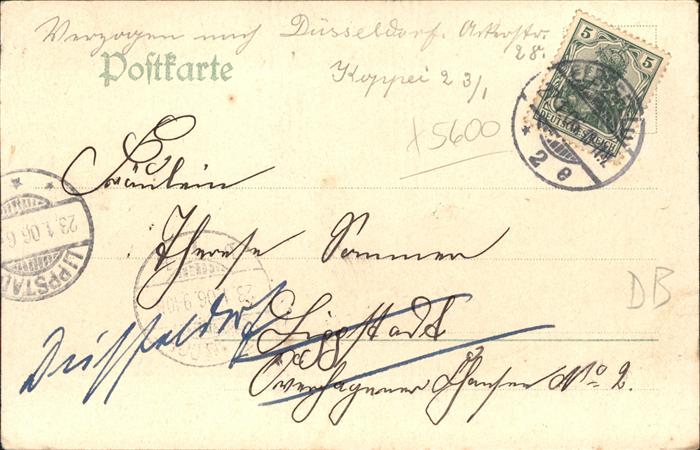 Verzogen nach Düsseldorf. Ackerstr.
28.
Postkarte
Koppei 23/1
x5600
5 5
DEUTSCHES REICH
* 2 e
Fräulein
Therese Sommer
23.1.06.6
LIPPSTA
23.1.06.9-10
DB
Düsseldorf
Lippstadt
Overhagener Chaussee No 2.